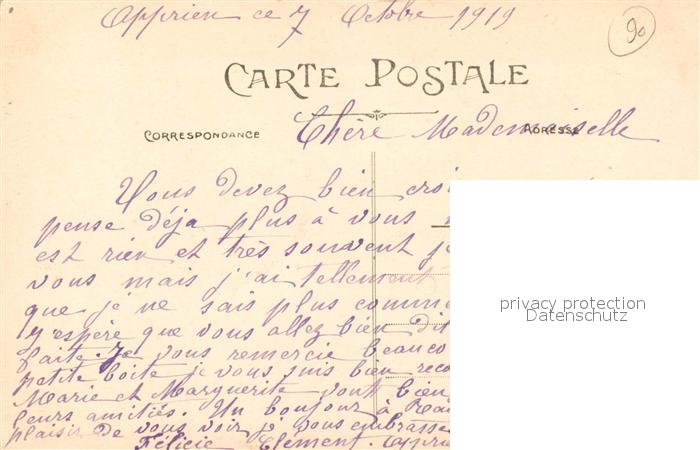 Apprieu ce 7 Octobre 1919
90
CARTE POSTALE
CORRESPONDANCE
ADRESSE
Chère Mademoiselle
Vous devez bien croi
pense déja plus à vous
est rien et très souvent je
vous mais j'ai tellement
que je ne sais plus comme
J'espère que vous allez bien dit
faite. Je vous remercie beauco
petite boite je vous suis bien reco
Marie et Marguerite vont bien
leurs amitiés. Un bonjour à
plaisir de vous voir je vous embrasse
Félicie Clément. Apprieu
privacy protection
Datenschutz